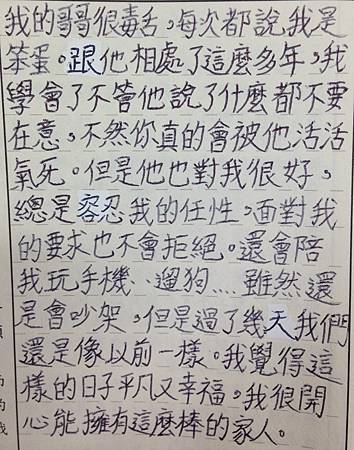 我的哥哥很毒舌，每次都說我是
笨蛋。跟他相處了這麼多年，我
學會了不管他說了什麼都不要
在意，不然你真的會被他活活
氣死。但是他也對我很好，
總是容忍我的任性，面對我
的要求也不會拒絕。還會陪
我玩手機、遛狗....雖然還
是會吵架，但是過了幾天我們
還是像以前一樣。我覺得這
樣的日子平凡又幸福。我很開
心能擁有這麼棒的家人。